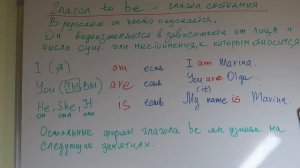 Глагол to be - глагол связка.
В русском он часто опускается.
Он видоизменяется в зависимости от лица и
числа сущ. или местоимения, к которым относится
I (Я) am есть I am Marina.
You (Ты, Вы) are есть You are Olga.
(it)
He, She, It is есть My name is Marina.
он она оно
Остальные формы глагола be мы узнаем на
следующих занятиях.